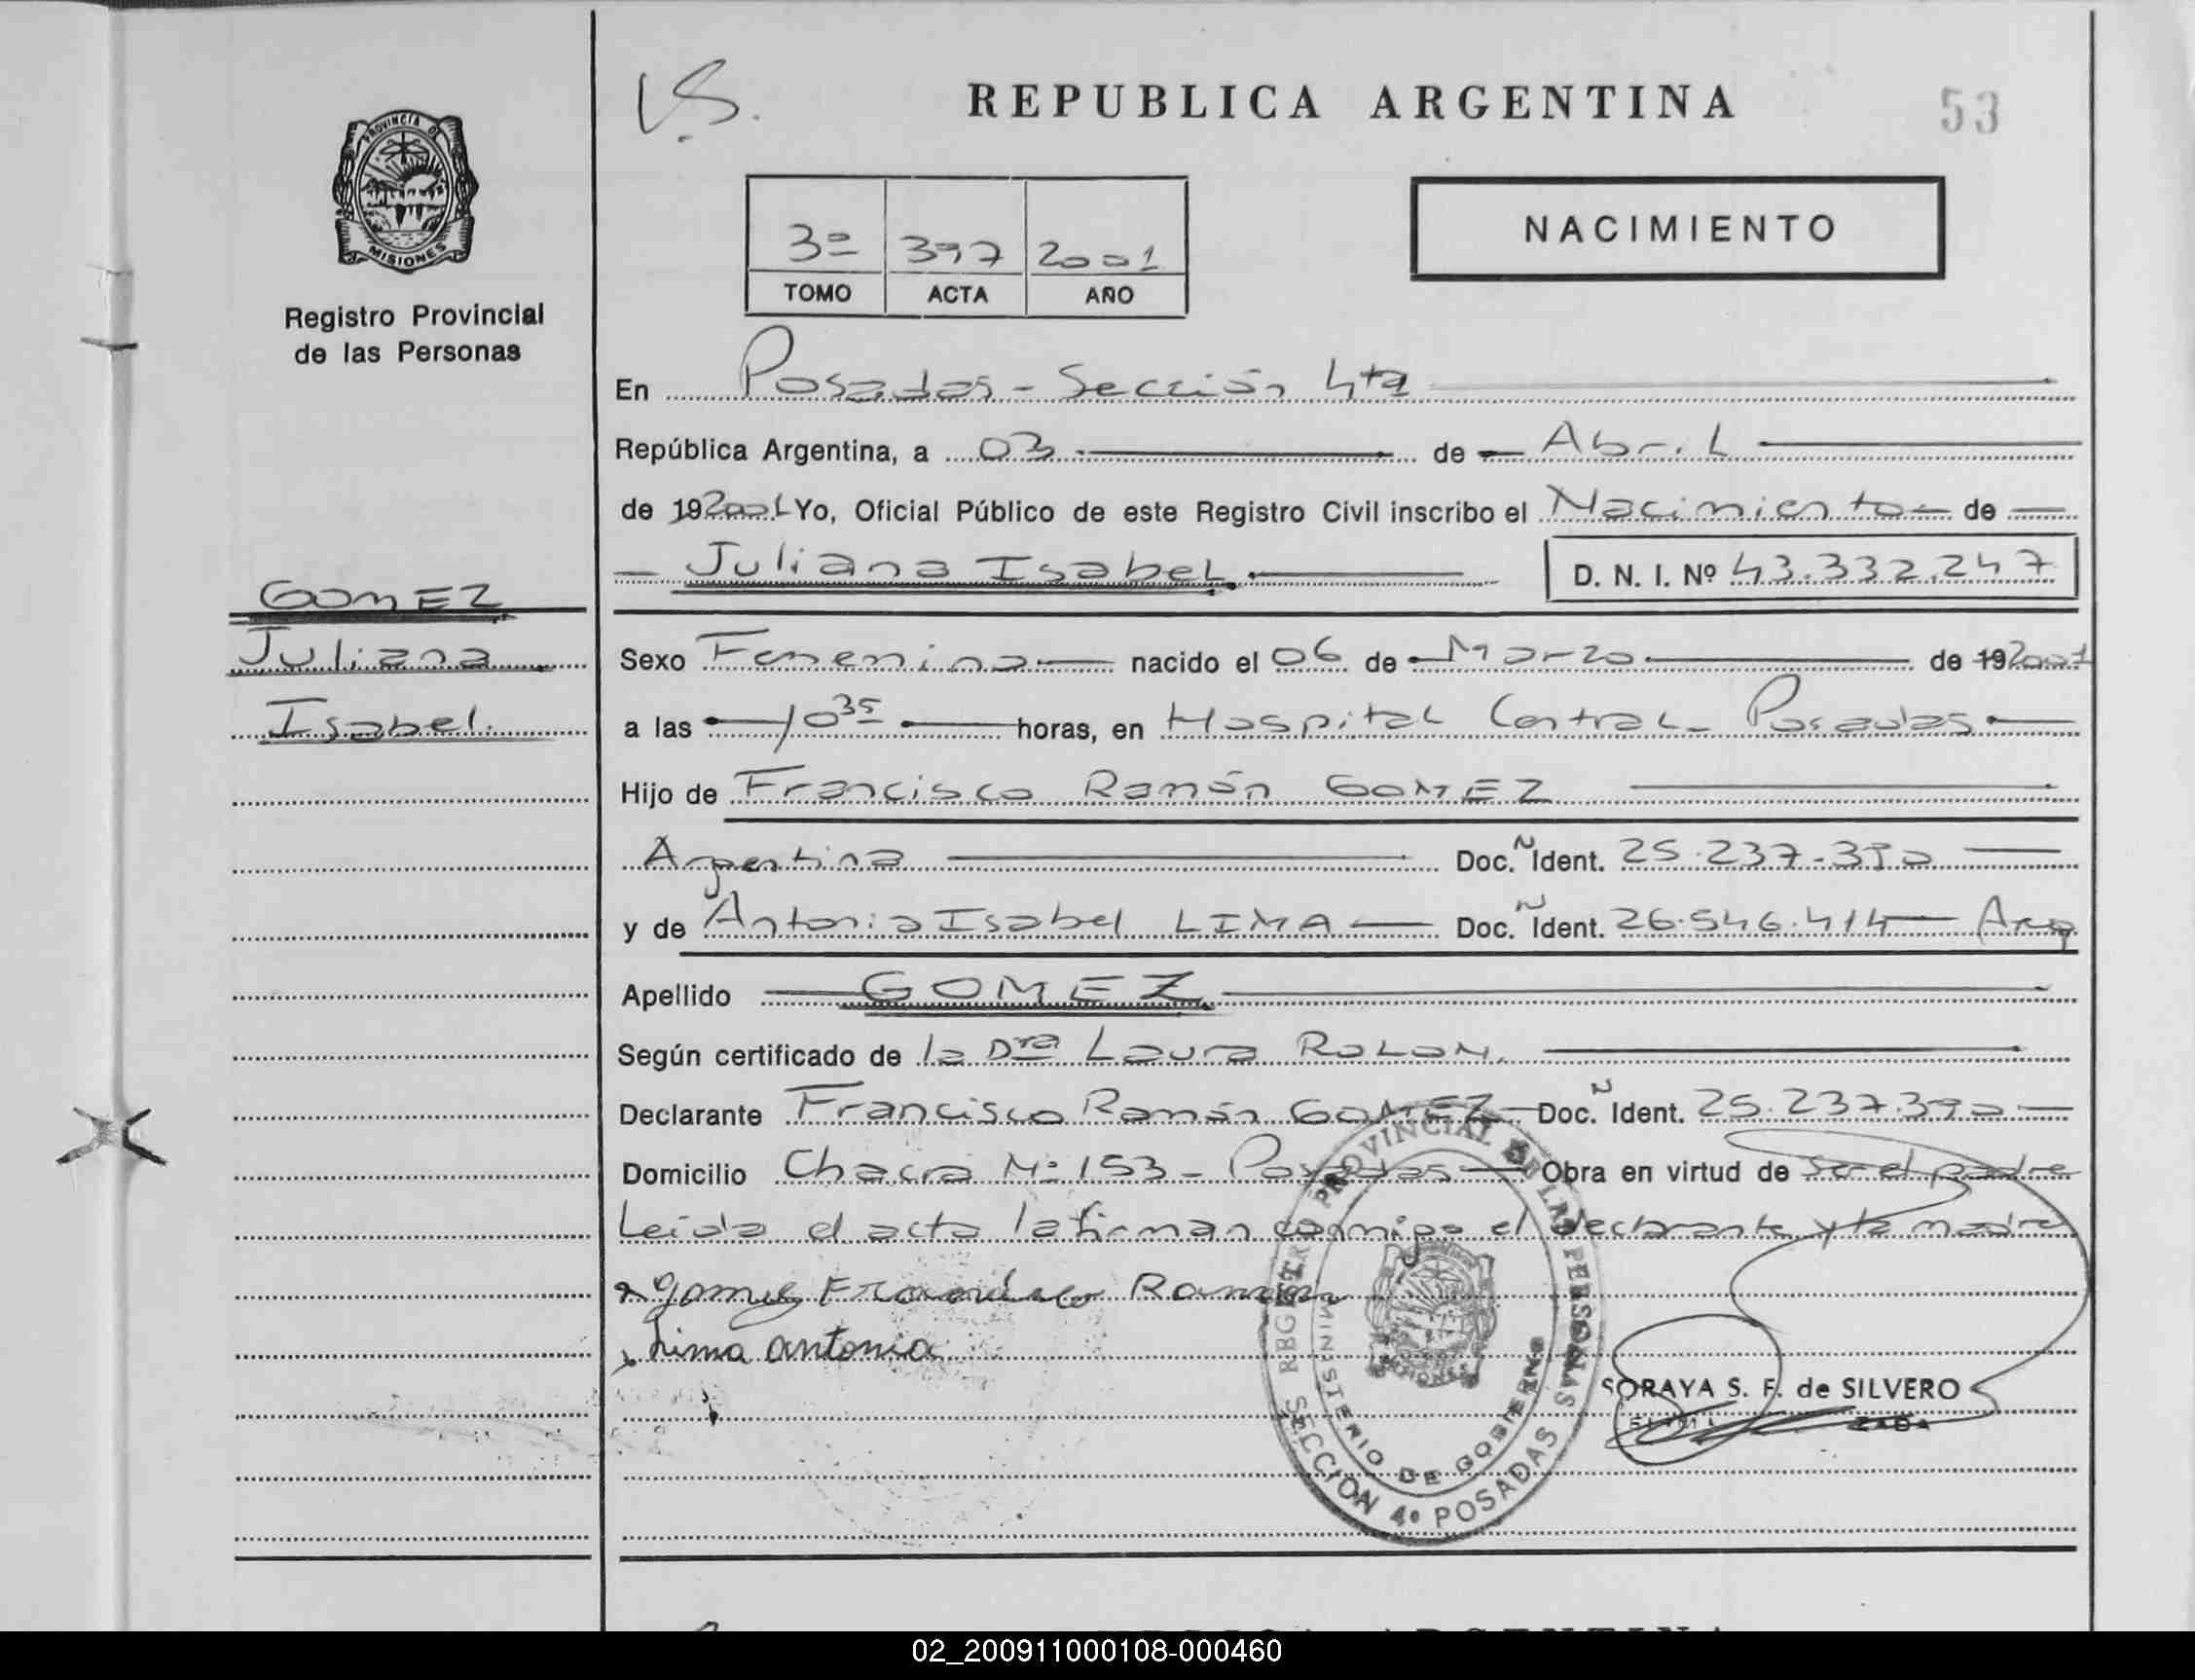 V.S.
REPUBLICA ARGENTINA
53
PROVINCIA DE
MISIONES
Registro Provincial
de las Personas
3º 397 2001
TOMO ACTA AÑO
NACIMIENTO
En Posadas - Sección 4ta
República Argentina, a 03 de Abril
de 192001 Yo, Oficial Público de este Registro Civil inscribo el Nacimiento de
Juliana Isabel. D. N. I. Nº 43.332.247
GOMEZ
Juliana
Isabel.
Sexo Femenino nacido el 06 de Marzo de 192001
a las 10 35 horas, en Hospital Central - Posadas
Hijo de Francisco Ramón GOMEZ
Argentina Doc. Ñ Ident. 25.237.390
y de Antonia Isabel LIMA Doc. Ñ Ident. 26.546.414 Arg
Apellido GOMEZ
Según certificado de la Dra Laura ROLON.
Declarante Francisco Ramón GOMEZ Doc. Ñ Ident. 25.237.390
Domicilio Chacra Nº 153 - Posadas Obra en virtud de ser el padre
Leida el acta la firman conmigo el declarante y la madre
x Gomez Francisco Ramon
x Lima antonia
REGISTRO PROVINCIAL DE LAS PERSONAS
MINISTERIO DE GOBIERNO
SECCION 4º POSADAS
SORAYA S. F. de SILVERO
02_200911000108-000460